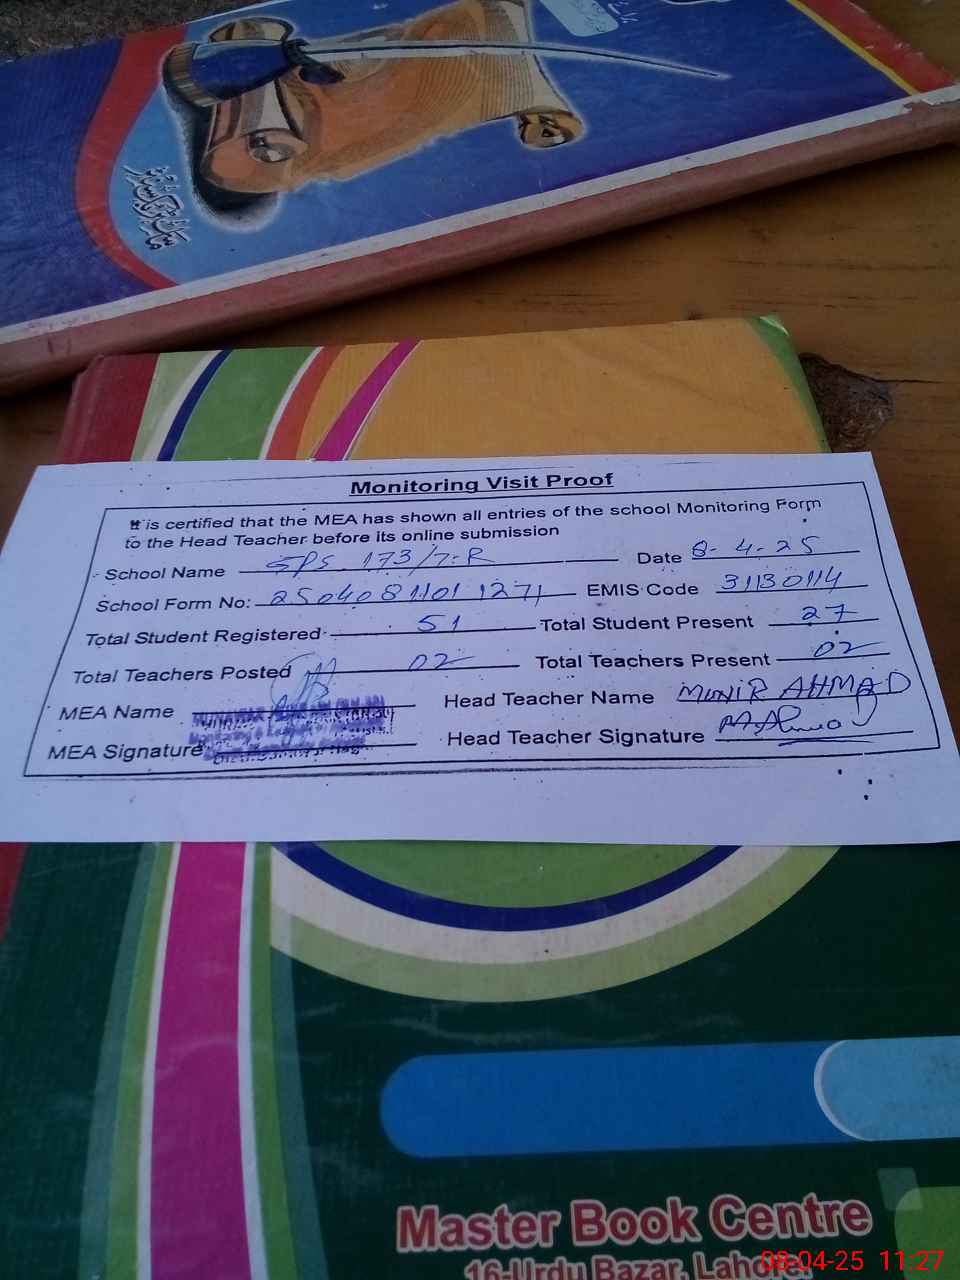 Monitoring Visit Proof
It is certified that the MEA has shown all entries of the school Monitoring Form
to the Head Teacher before its online submission
School Name GPS 173/7-R Date 8-4-25
School Form No: 2504081101 1271 EMIS Code 31130114
Total Student Registered 51 Total Student Present 27
Total Teachers Posted 02 Total Teachers Present 02
MEA Name Head Teacher Name MUNIR AHMAD
MEA Signature Head Teacher Signature
Master Book Centre
16-Urdu Bazar, Lahore.
08-04-25 11:27